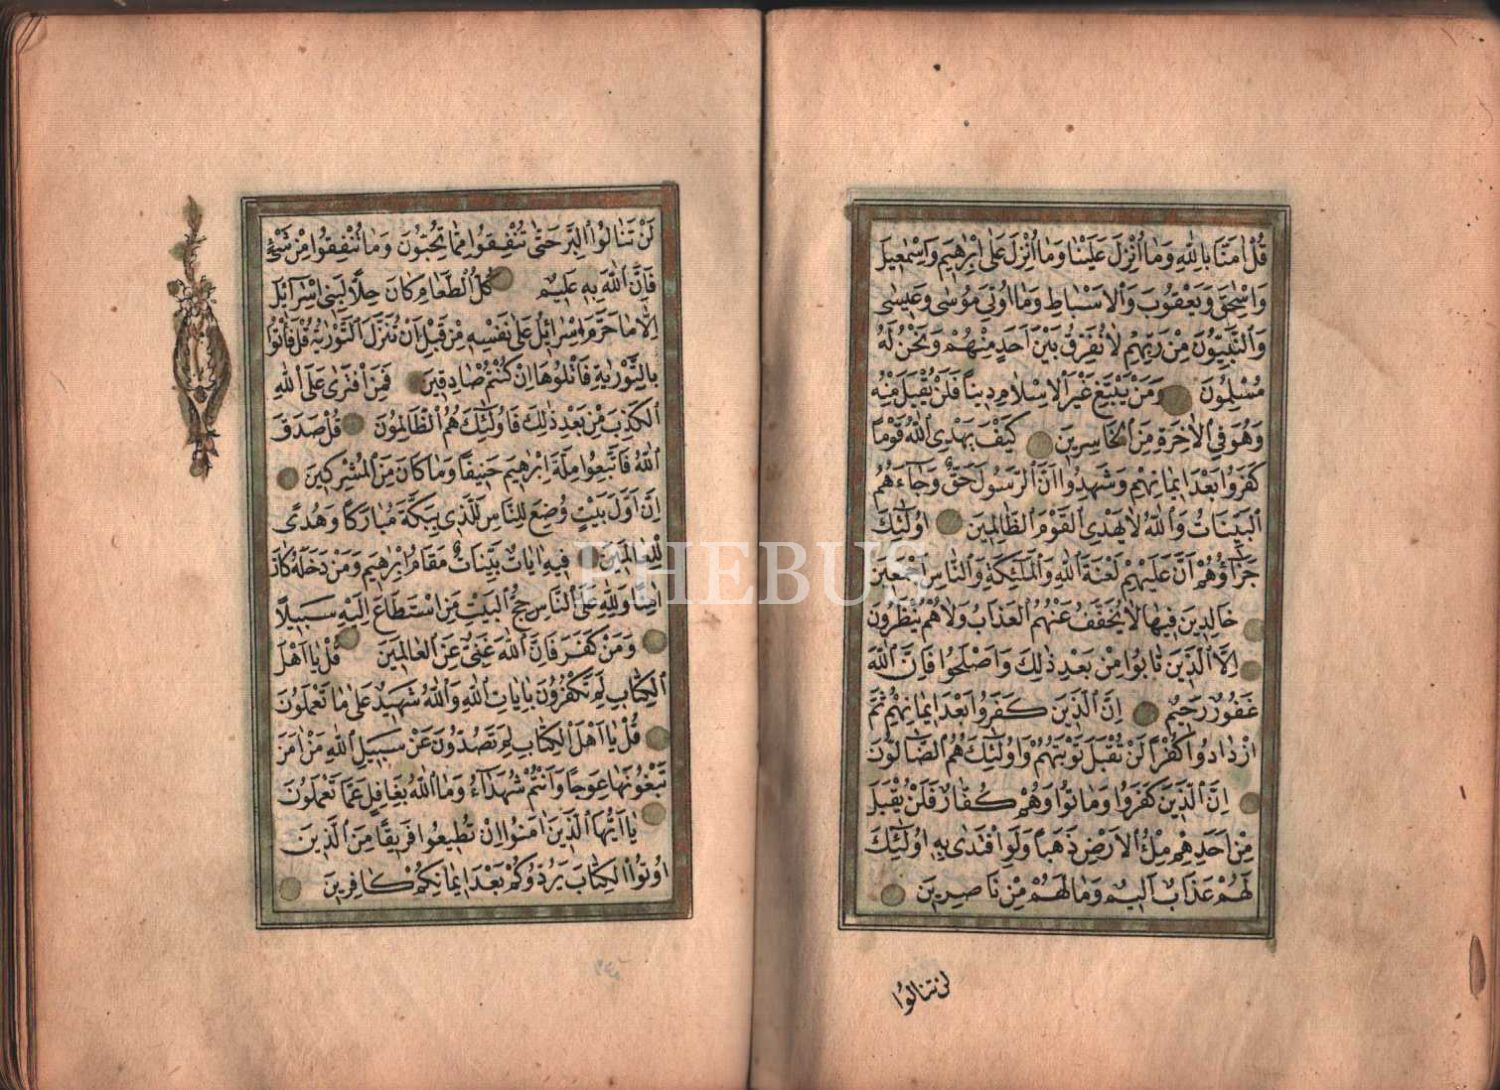 قُلْ اٰمَنَّا بِاللّٰهِ وَمَا اُنْزِلَ عَلَيْنَا وَمَا اُنْزِلَ عَلٰى اِبْرٰهِيمَ وَاِسْمٰعِيلَ
وَاِسْحٰقَ وَيَعْقُوبَ وَالْاَسْبَاطِ وَمَا اُوتِيَ مُوسٰى وَعِيسٰى
وَالنَّبِيُّونَ مِنْ رَبِّهِمْ لَا نُفَرِّقُ بَيْنَ اَحَدٍ مِنْهُمْ وَنَحْنُ لَهُ
مُسْلِمُونَ وَمَنْ يَبْتَغِ غَيْرَ الْاِسْلَامِ دِينًا فَلَنْ يُقْبَلَ مِنْهُ
وَهُوَ فِي الْاٰخِرَةِ مِنَ الْخَاسِرِينَ كَيْفَ يَهْدِي اللّٰهُ قَوْمًا
كَفَرُوا بَعْدَ اِيمَانِهِمْ وَشَهِدُوا اَنَّ الرَّسُولَ حَقٌّ وَجَاءَهُمُ
الْبَيِّنَاتُ وَاللّٰهُ لَا يَهْدِي الْقَوْمَ الظَّالِمِينَ اُولٰئِكَ
جَزَاؤُهُمْ اَنَّ عَلَيْهِمْ لَعْنَةَ اللّٰهِ وَالْمَلٰئِكَةِ وَالنَّاسِ اَجْمَعِينَ
خَالِدِينَ فِيهَا لَا يُخَفَّفُ عَنْهُمُ الْعَذَابُ وَلَا هُمْ يُنْظَرُونَ
اِلَّا الَّذِينَ تَابُوا مِنْ بَعْدِ ذٰلِكَ وَاَصْلَحُوا فَاِنَّ اللّٰهَ
غَفُورٌ رَحِيمٌ اِنَّ الَّذِينَ كَفَرُوا بَعْدَ اِيمَانِهِمْ ثُمَّ
ازْدَادُوا كُفْرًا لَنْ تُقْبَلَ تَوْبَتُهُمْ وَاُولٰئِكَ هُمُ الضَّالُّونَ
اِنَّ الَّذِينَ كَفَرُوا وَمَاتُوا وَهُمْ كُفَّارٌ فَلَنْ يُقْبَلَ
مِنْ اَحَدِهِمْ مِلْءُ الْاَرْضِ ذَهَبًا وَلَوِ افْتَدٰى بِهِ اُولٰئِكَ
لَهُمْ عَذَابٌ اَلِيمٌ وَمَا لَهُمْ مِنْ نَاصِرِينَ
لن تنالوا
لَنْ تَنَالُوا الْبِرَّ حَتّٰى تُنْفِقُوا مِمَّا تُحِبُّونَ وَمَا تُنْفِقُوا مِنْ شَيْءٍ
فَاِنَّ اللّٰهَ بِهِ عَلِيمٌ كُلُّ الطَّعَامِ كَانَ حِلًّا لِبَنِي اِسْرَائِلَ
اِلَّا مَا حَرَّمَ اِسْرَائِلُ عَلٰى نَفْسِهِ مِنْ قَبْلِ اَنْ تُنَزَّلَ التَّوْرٰيةُ قُلْ فَأْتُوا
بِالتَّوْرٰيةِ فَاتْلُوهَا اِنْ كُنْتُمْ صَادِقِينَ فَمَنِ افْتَرٰى عَلَى اللّٰهِ
الْكَذِبَ مِنْ بَعْدِ ذٰلِكَ فَاُولٰئِكَ هُمُ الظَّالِمُونَ قُلْ صَدَقَ
اللّٰهُ فَاتَّبِعُوا مِلَّةَ اِبْرٰهِيمَ حَنِيفًا وَمَا كَانَ مِنَ الْمُشْرِكِينَ
اِنَّ اَوَّلَ بَيْتٍ وُضِعَ لِلنَّاسِ لَلَّذِي بِبَكَّةَ مُبَارَكًا وَهُدًى
لِلْعَالَمِينَ فِيهِ اٰيَاتٌ بَيِّنَاتٌ مَقَامُ اِبْرٰهِيمَ وَمَنْ دَخَلَهُ كَانَ
اٰمِنًا وَلِلّٰهِ عَلَى النَّاسِ حِجُّ الْبَيْتِ مَنِ اسْتَطَاعَ اِلَيْهِ سَبِيلًا
وَمَنْ كَفَرَ فَاِنَّ اللّٰهَ غَنِيٌّ عَنِ الْعَالَمِينَ قُلْ يَا اَهْلَ
الْكِتَابِ لِمَ تَكْفُرُونَ بِاٰيَاتِ اللّٰهِ وَاللّٰهُ شَهِيدٌ عَلٰى مَا تَعْمَلُونَ
قُلْ يَا اَهْلَ الْكِتَابِ لِمَ تَصُدُّونَ عَنْ سَبِيلِ اللّٰهِ مَنْ اٰمَنَ
تَبْغُونَهَا عِوَجًا وَاَنْتُمْ شُهَدَاءُ وَمَا اللّٰهُ بِغَافِلٍ عَمَّا تَعْمَلُونَ
يَا اَيُّهَا الَّذِينَ اٰمَنُوا اِنْ تُطِيعُوا فَرِيقًا مِنَ الَّذِينَ
اُوتُوا الْكِتَابَ يَرُدُّوكُمْ بَعْدَ اِيمَانِكُمْ كَافِرِينَ
PHEBUS